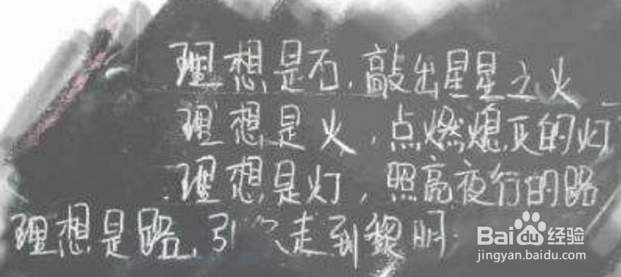 理想是石,敲出星星之火
理想是火,点燃熄灭的灯
理想是灯,照亮夜行的路
理想是路,引 走到黎明.
Baidu经验
jingyan.baidu.com